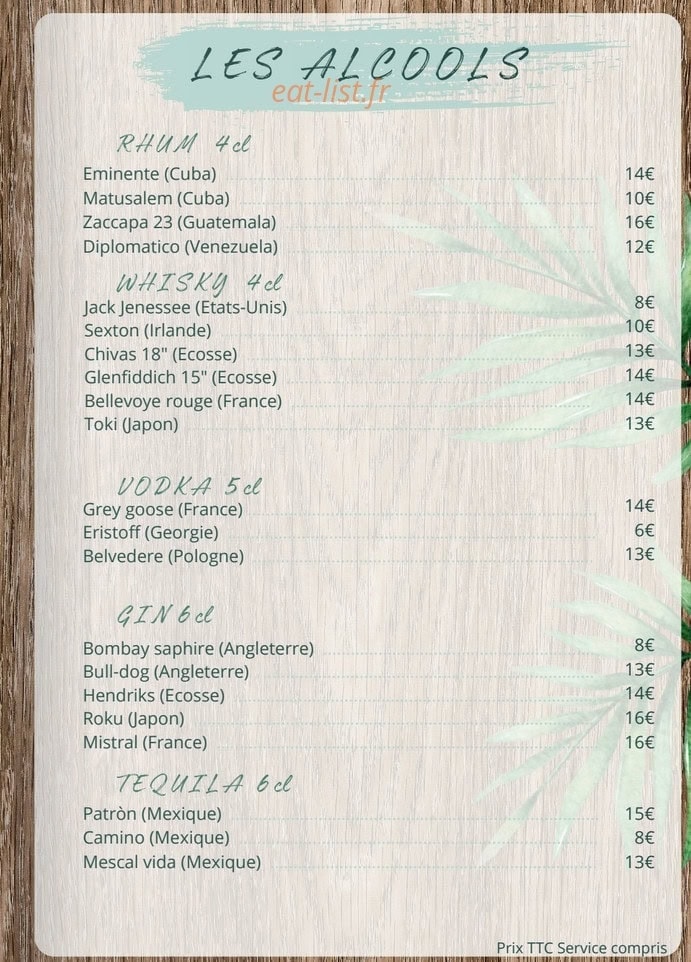 LES ALCOOLS
eat-list.fr
RHUM 4cl
Eminente (Cuba) 14€
Matusalem (Cuba) 10€
Zaccapa 23 (Guatemala) 16€
Diplomatico (Venezuela) 12€
WHISKY 4cl
Jack Jenessee (Etats-Unis) 8€
Sexton (Irlande) 10€
Chivas 18" (Ecosse) 13€
Glenfiddich 15" (Ecosse) 14€
Bellevoye rouge (France) 14€
Toki (Japon) 13€
VODKA 5cl
Grey goose (France) 14€
Eristoff (Georgie) 6€
Belvedere (Pologne) 13€
GIN 6cl
Bombay saphire (Angleterre) 8€
Bull-dog (Angleterre) 13€
Hendriks (Ecosse) 14€
Roku (Japon) 16€
Mistral (France) 16€
TEQUILA 6cl
Patròn (Mexique) 15€
Camino (Mexique) 8€
Mescal vida (Mexique) 13€
Prix TTC Service compris